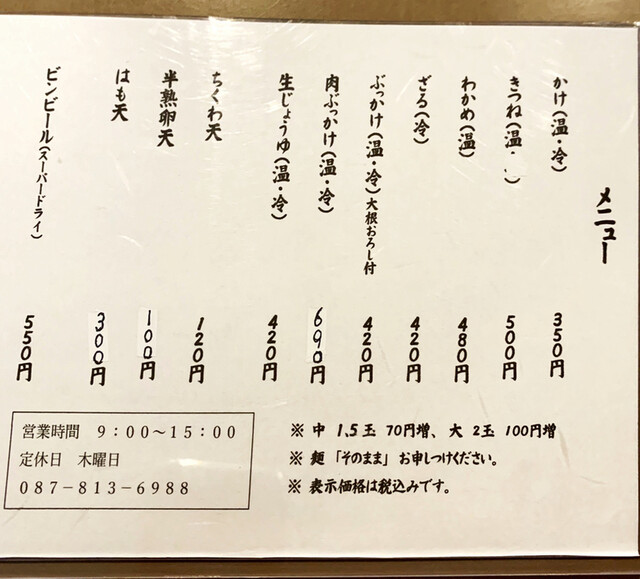 メニュー
かけ(温・冷) 350円
きつね(温・ ) 500円
わかめ(温) 480円
ざる(冷) 420円
ぶっかけ(温・冷)大根おろし付 420円
肉ぶっかけ(温・冷) 690円
生じょうゆ(温・冷) 420円
ちくわ天 120円
半熟卵天 100円
はも天 300円
ビンビール(スーパードライ) 550円
※ 中 1.5玉 70円増、大 2玉 100円増
※ 麺「そのまま」お申しつけください。
※ 表示価格は税込みです。
営業時間 9：00～15：00
定休日 木曜日
087－813－6988